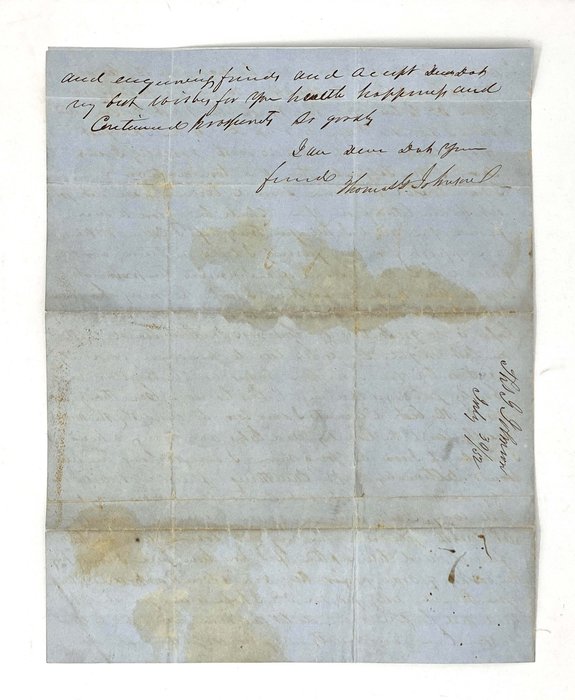 and enquiring friends and accept Dear Dok
my best wishes for your health happiness and
Continued prosperity So goodby
I am Dear Dok Your
friend Thomas G. Johnson
Ths G Johnson
July 30 /52